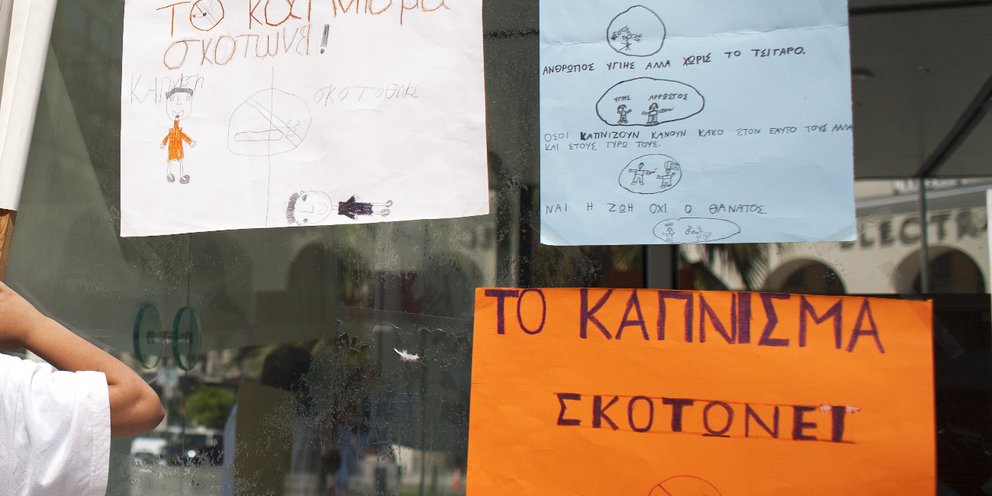 ΤΟ ΚΑΠΝΙΣμα
σκοτώνει!
ΚΑΠνιση
σκοτοθηκε
ΑΝΘΡΩΠΟΣ ΥΓΙΗΣ ΑΛΛΑ ΧΩΡΙΣ ΤΟ ΤΣΙΓΑΡΟ.
ΥΓΙΗΣ ΑΡΡΩΣΤΟΣ
ΟΣΟΙ ΚΑΠΝΙΖΟΥΝ ΚΑΝΟΥΝ ΚΑΚΟ ΣΤΟΝ ΕΑΥΤΟ ΤΟΥΣ ΑΛΛΑ
ΚΑΙ ΣΤΟΥΣ ΓΥΡΩ ΤΟΥΣ.
ΝΑΙ Η ΖΩΗ ΟΧΙ Ο ΘΑΝΑΤΟΣ.
ΤΟ ΚΑΠΝΙΣΜΑ
ΣΚΟΤΩΝΕΙ
ELECTRA